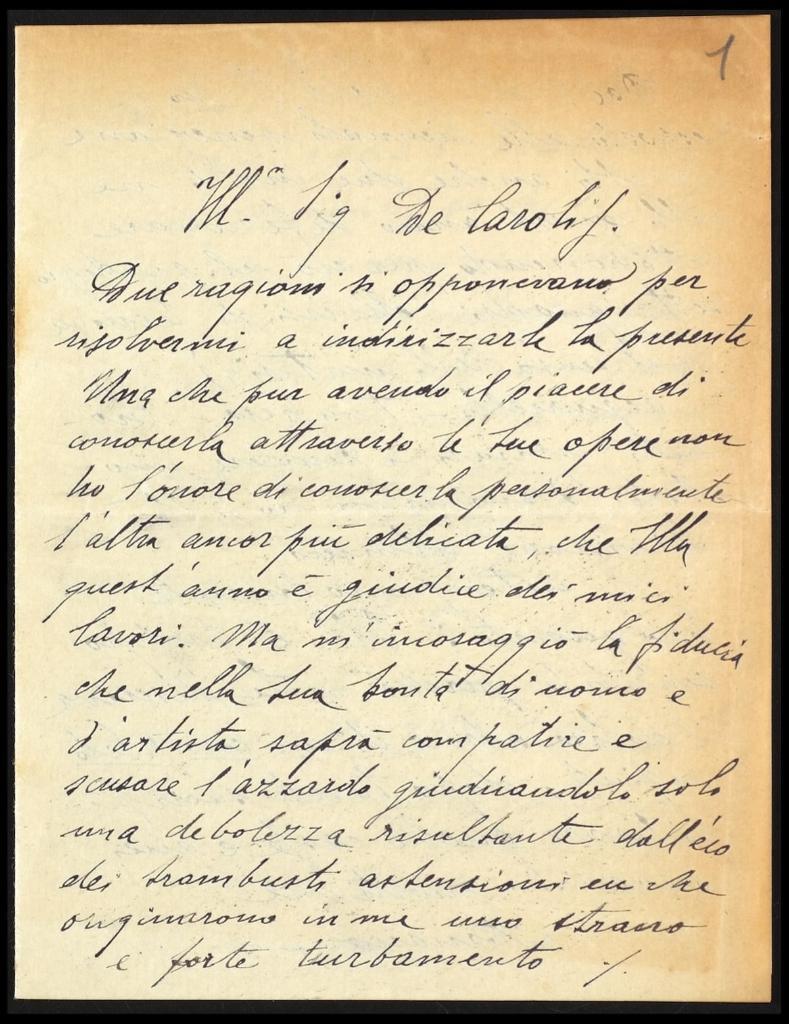 1
Ill.mo Sig De Carolis.
Due ragioni si opponevano per
risolvermi a indirizzarle la presente
Una che pur avendo il piacere di
conoscerla attraverso le sue opere non
ho l'onore di conoscerla personalmente
l'altra ancor più delicata, che Ella
quest'anno è giudice dei miei
lavori. Ma m'incoraggiò la fiducia
che nella sua bontà di uomo e
d'artista saprà compatire e
scusare l'azzardo giudicandolo solo
una debolezza risultante dall'eco
dei trambusti astensioni che
originarono in me uno strano
e forte turbamento ./